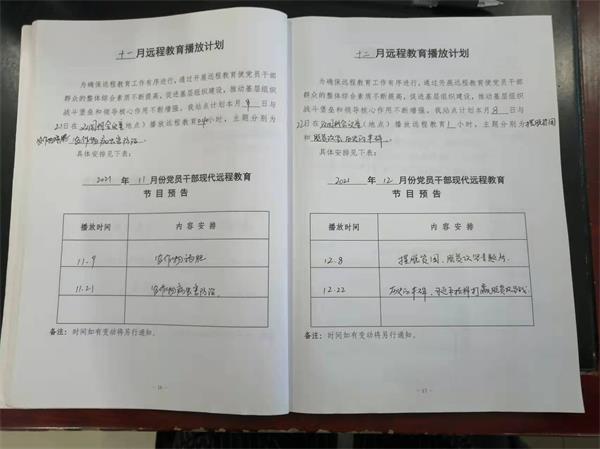 十一月远程教育播放计划
为确保远程教育工作有序进行，通过开展远程教育使党员干部
群众的整体综合素质不断提高，促进基层组织建设，推动基层组织
战斗堡垒和领导核心作用不断增强。我站点计划本月 9 日与
21日在（地点）播放远程教育小时，主题分别为
农作物病虫害防治。
具体安排见下表：
2021 年 11 月份党员干部现代远程教育
节目预告
播放时间 内容安排
11.9 农作物
11.21 农作物病虫害防治。
备注：时间如有变动将另行通知。
- 16 -
十二月远程教育播放计划
为确保远程教育工作有序进行，通过开展远程教育使党员干部
群众的整体综合素质不断提高，促进基层组织建设，推动基层组织
战斗堡垒和领导核心作用不断增强。我站点计划本月 8 日与
22日在（地点）播放远程教育 1 小时，主题分别为摆脱贫困
和
具体安排见下表：
2021 年 12 月份党员干部现代远程教育
节目预告
播放时间 内容安排
12.8 摆脱贫困、脱贫攻坚
12.22 历史的丰碑、打赢脱贫攻坚战
备注：时间如有变动将另行通知。
- 17 -